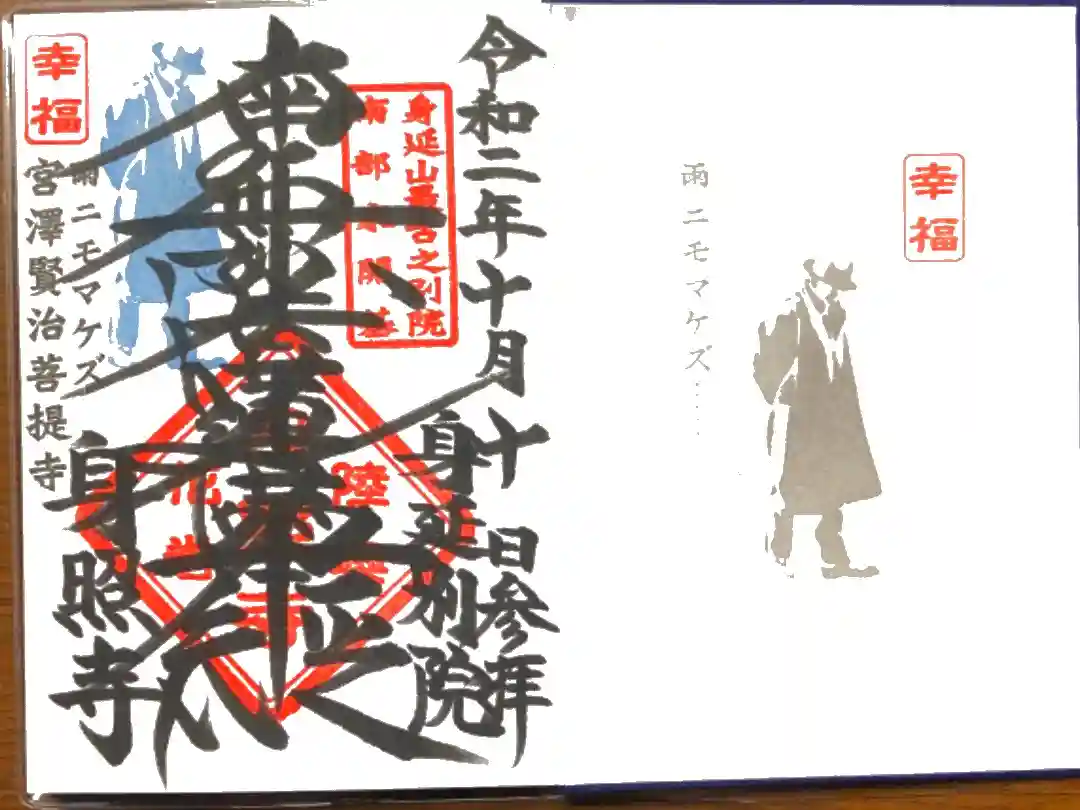 幸福
雨ニモマケズ……
令和二年十月十日参拝
身延山
之別院
南部
身延別院
南無妙法蓮華経
陸
花巻
身照寺
雨ニモマケズ
宮澤賢治菩提寺
幸福